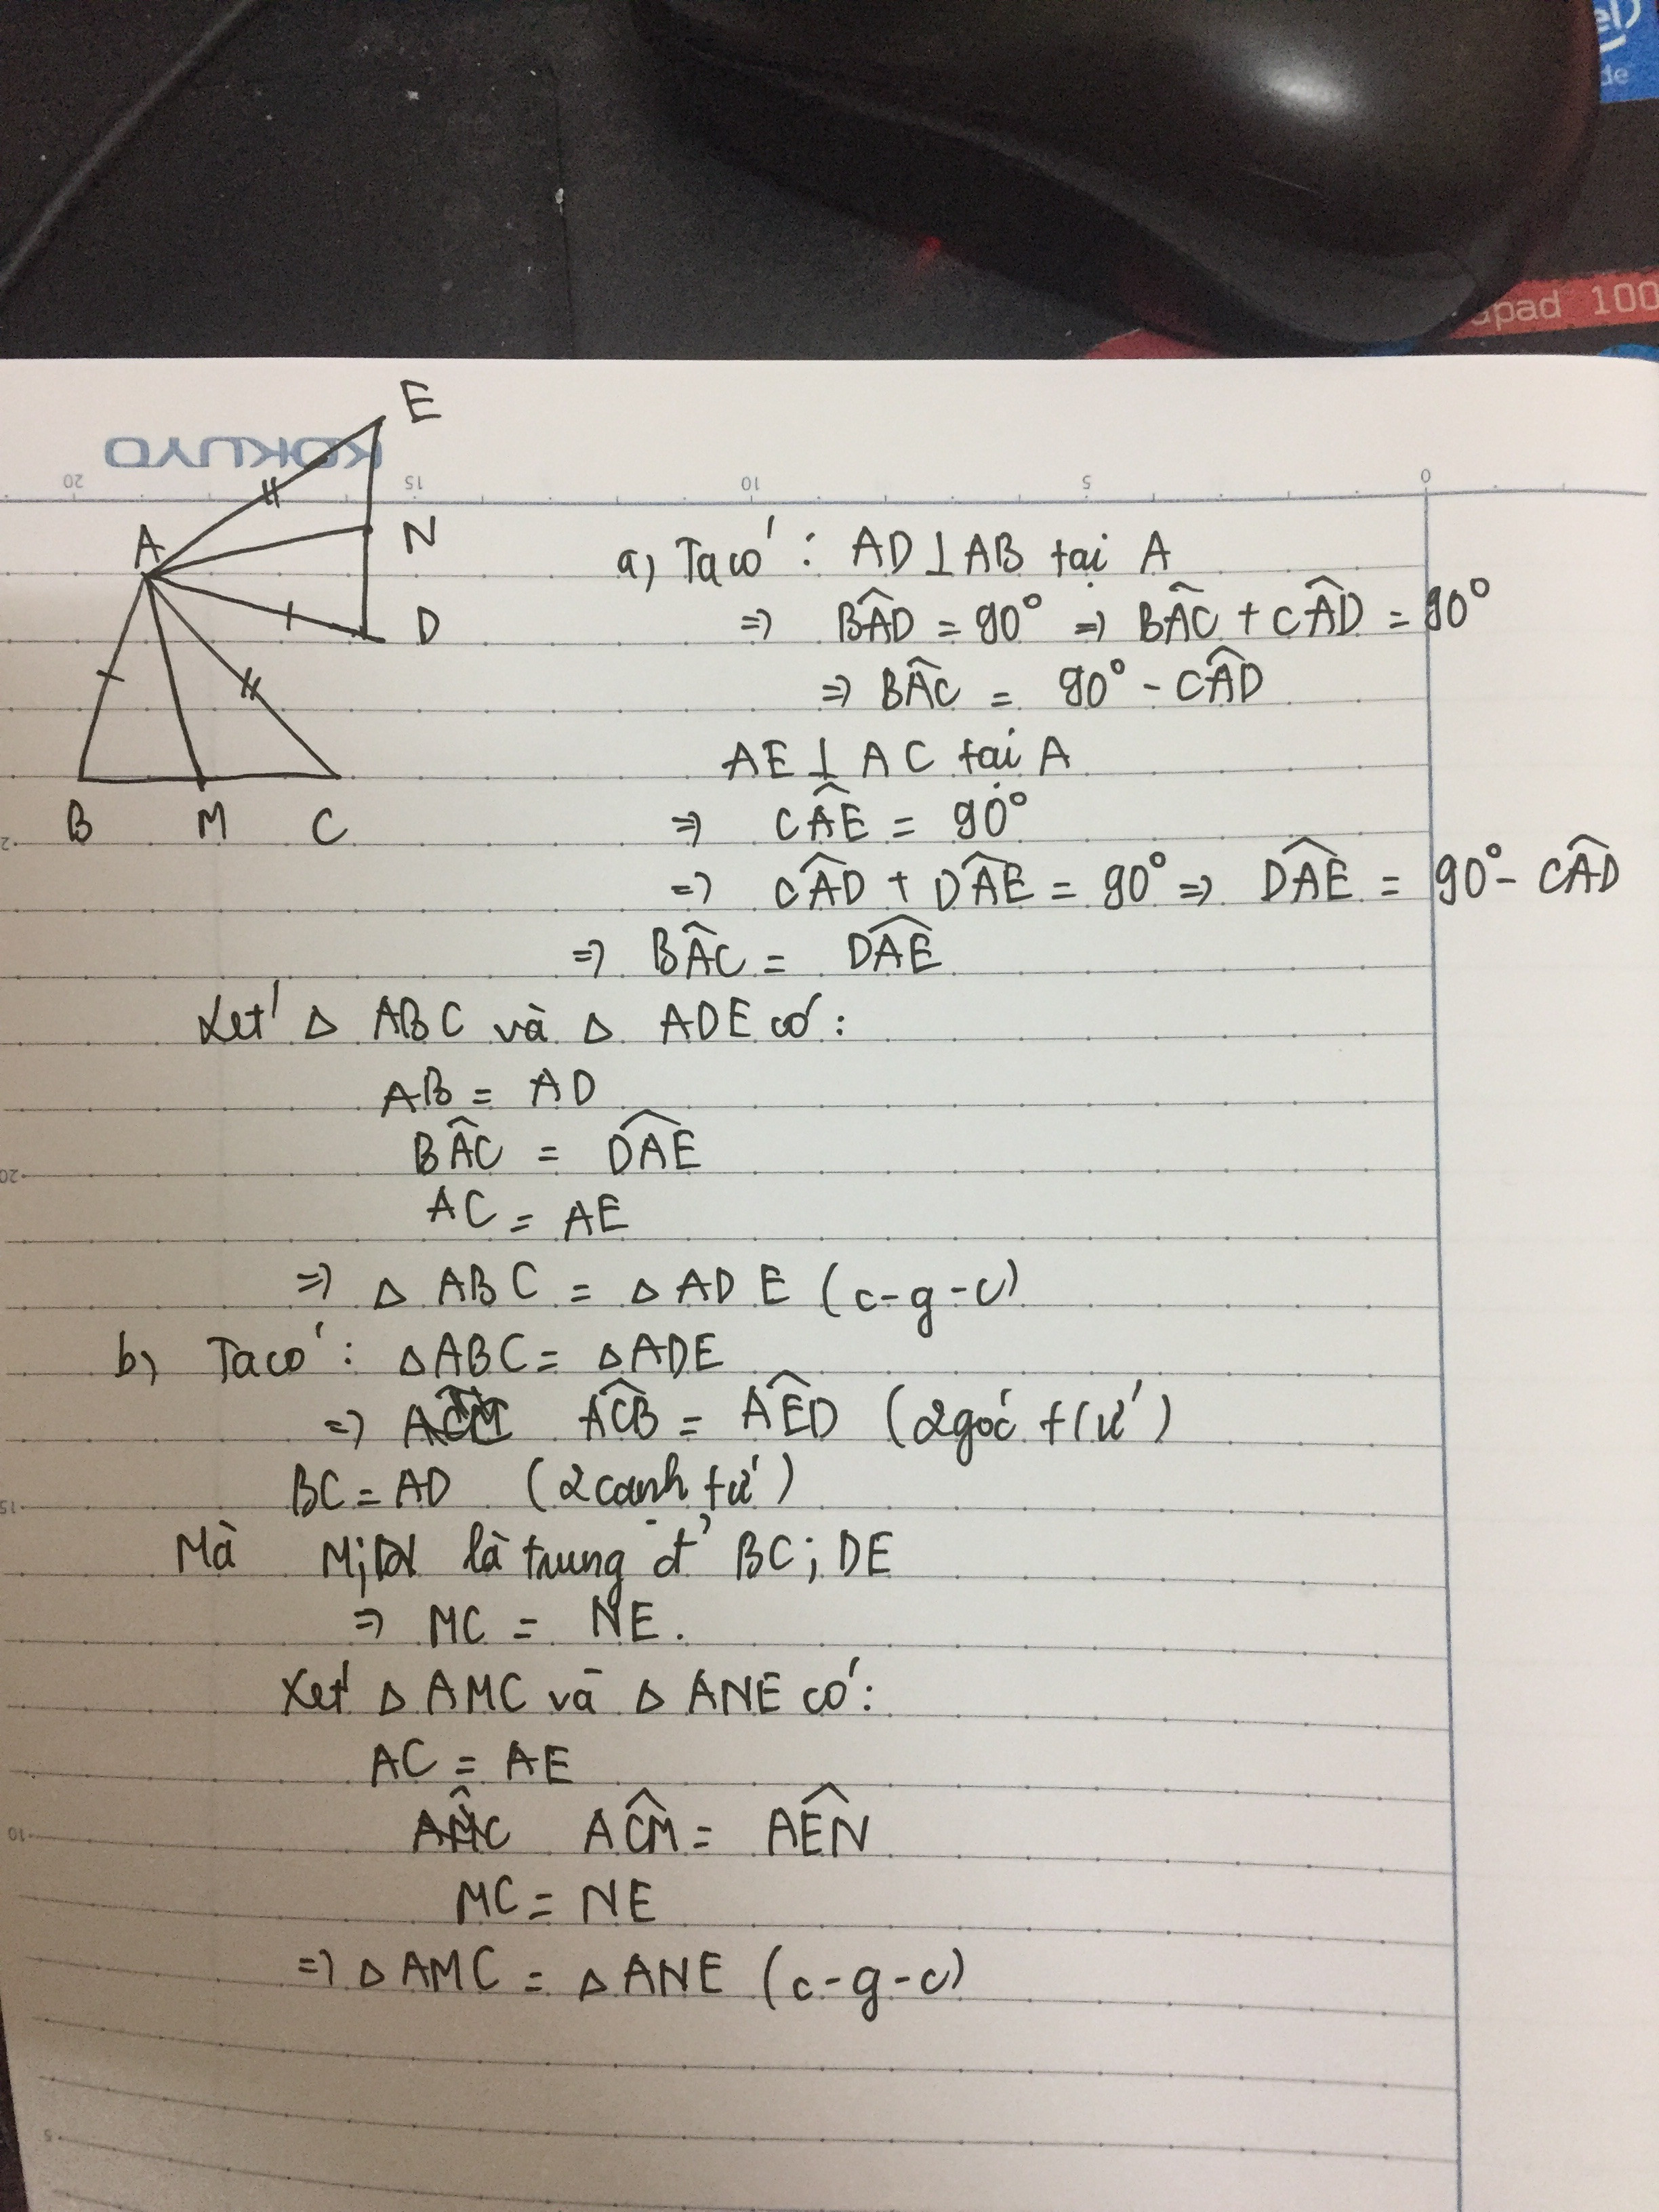 el)
de
pad 100
E
KOKUYO
20 15 10 5 0
A
N
D
B M C
a) Ta có: AD⊥AB tại A
=> BÂD = 90° => BÂC + CÂD = 90°
=> BÂC = 90° - CÂD
AE⊥AC tại A
=> CÂE = 90°
=> CÂD + DÂE = 90° => DÂE = 90° - CÂD
=> BÂC = DÂE
Xét △ ABC và △ ADE có:
AB = AD
BÂC = DÂE
AC = AE
=> △ ABC = △ ADE (c-g-c)
b) Ta có: △ABC = △ADE
=> AĈB = AÊD (2 góc t/ứ)
BC = AD (2 cạnh tứ)
Mà M;N là trung đ' BC; DE
=> MC = NE.
Xét △ AMC và △ ANE có:
AC = AE
AM̂C AĈM = AÊN
MC = NE
=> △ AMC = △ ANE (c-g-c)
20
15
10
5